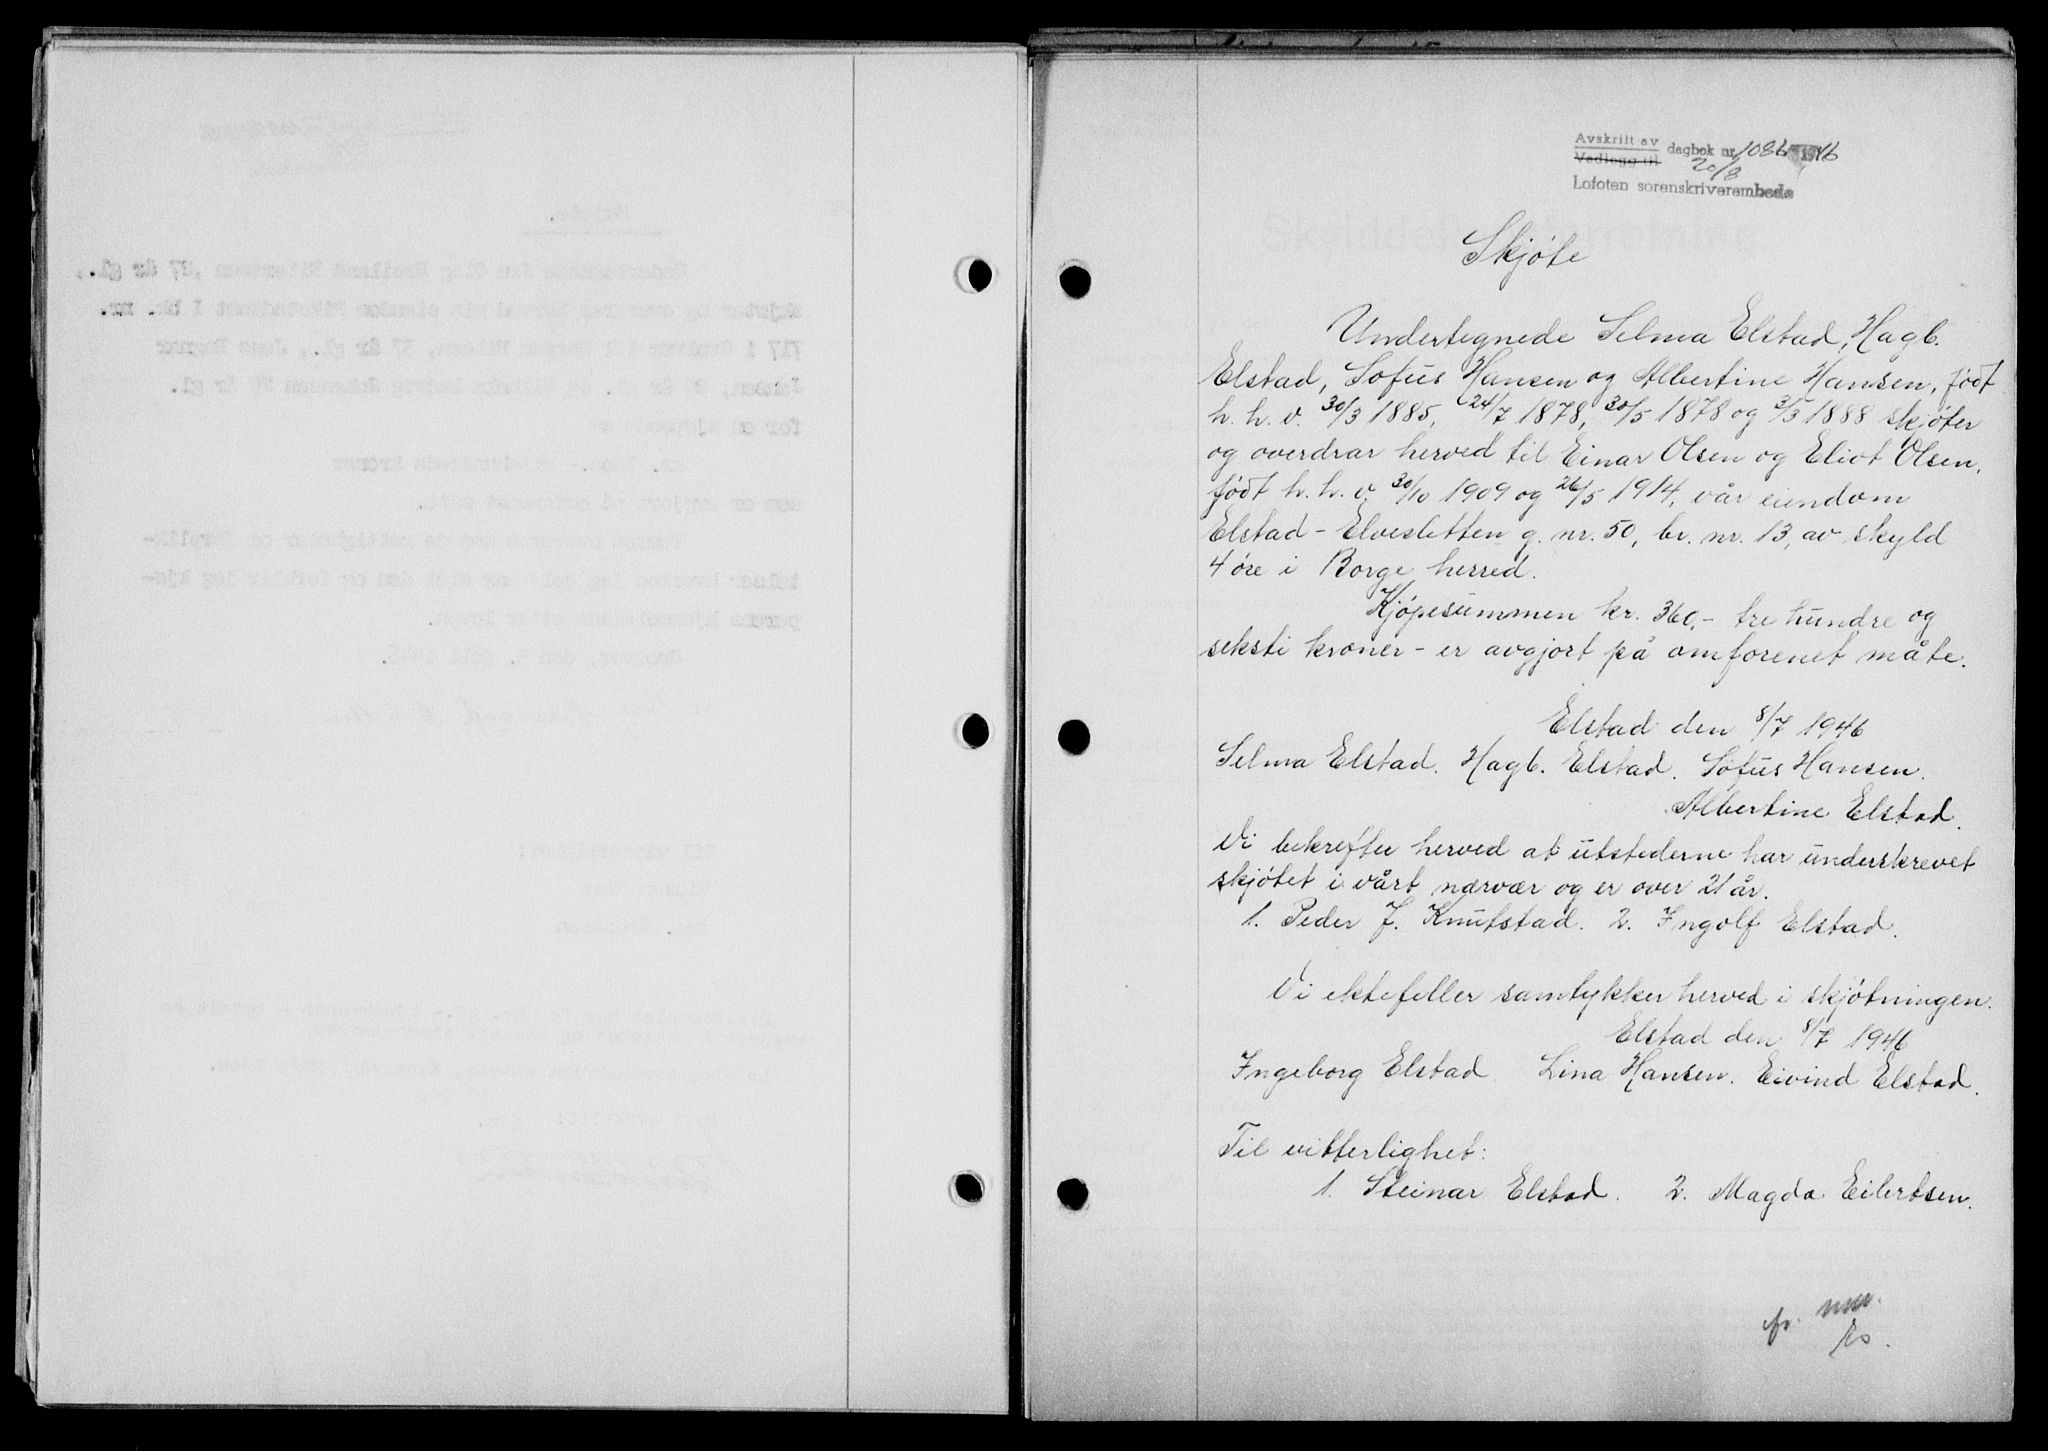 Avskrift av
Vedlegg til dagbok nr. 1086 1946
20/8
Lofoten sorenskriverembede
Skjøte
Undertegnede Selma Elstad, Hagb.
Elstad, Sofus Hansen og Albertine Hansen, født
h. h. v. 30/3 1885, 24/7 1878, 30/5 1878 og 3/3 1888 skjøter
og overdrar herved til Einar Olsen og Eliot Olsen,
født h. h. v. 30/10 1909 og 26/5 1914, vår eiendom
Elstad - Elvesletten g. nr. 50, br. nr. 13, av skyld
4 øre i Borge herred.
Kjøpesummen kr. 360,- tre hundre og
seksti kroner - er avgjort på omforenet måte.
Elstad den 8/7 1946
Selma Elstad. Hagb. Elstad. Sofus Hansen.
Albertine Elstad.
Vi bekrefter herved at utstederne har underskrevet
skjøtet i vårt nærvær og er over 21 år.
1. Peder J. Knutstad. 2. Ingolf Elstad.
Vi ektefeller samtykker herved i skjøtningen.
Elstad den 8/7 1946
Ingeborg Elstad Lina Hansen. Eivind Elstad.
Til vitterlighet:
1. Steinar Elstad. 2. Magda Eilertsen.